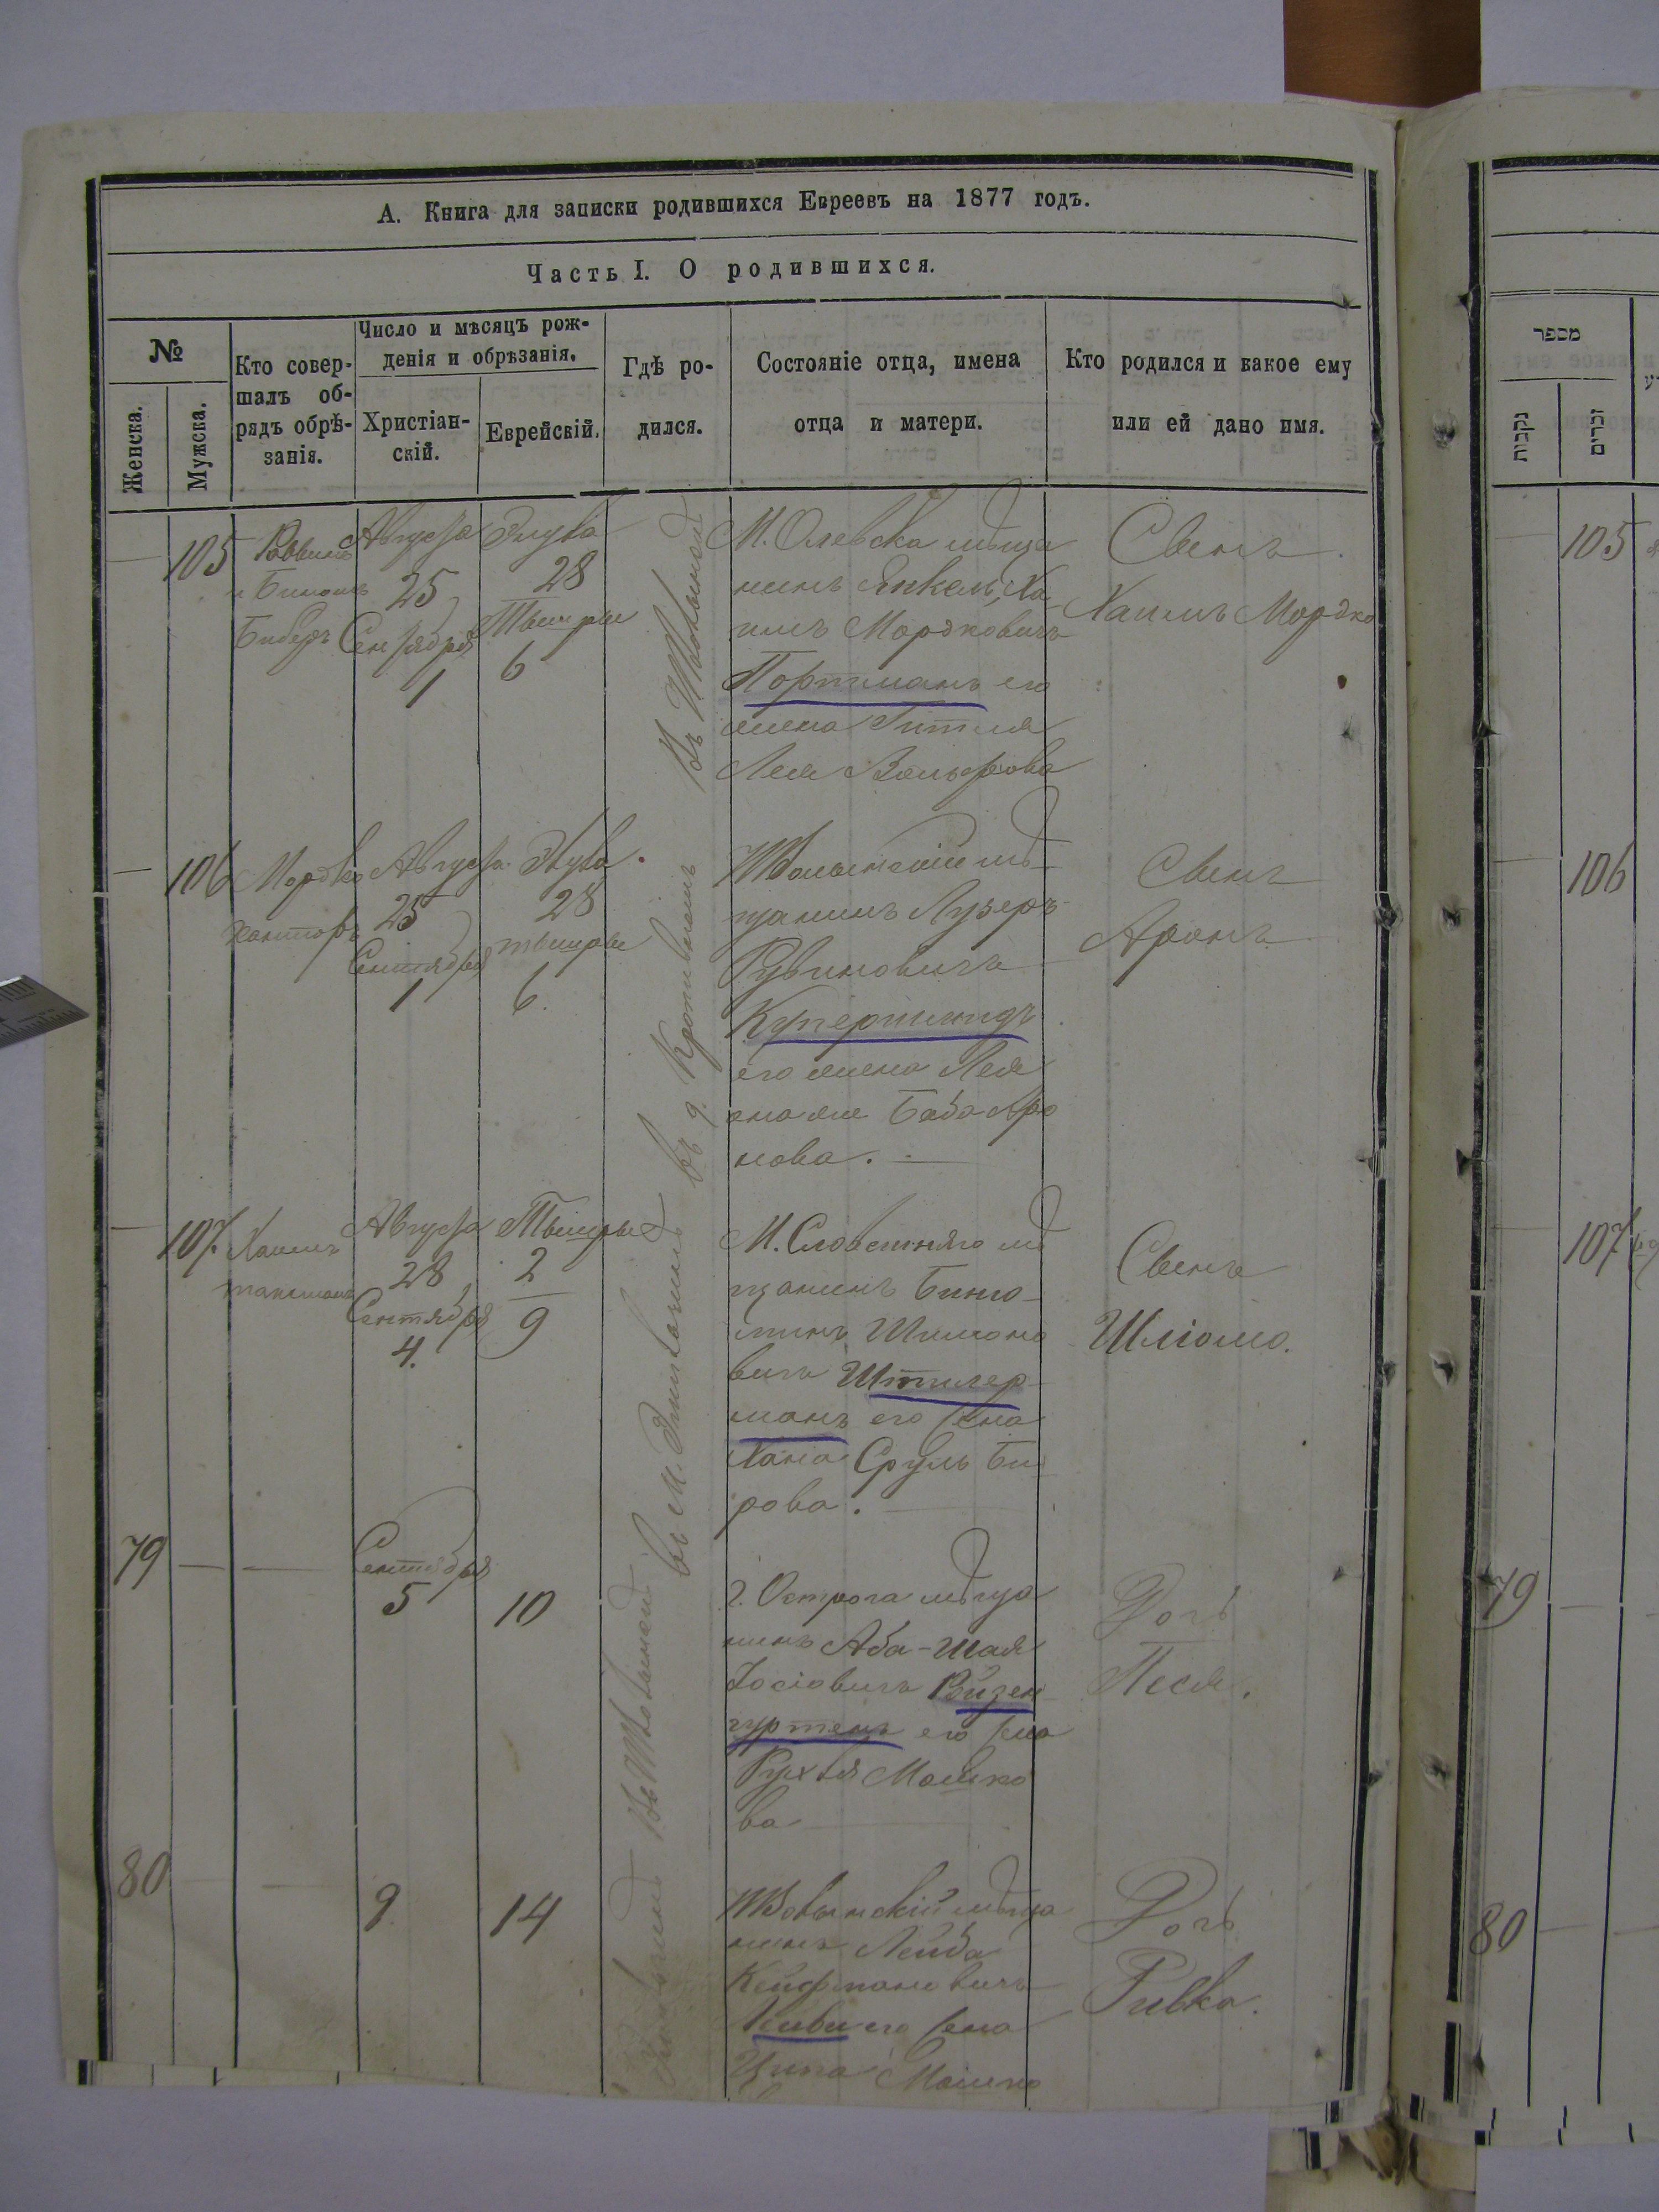 А. Книга для записки родившихся Евреевъ на 1877 годъ.
Часть I. О родившихся.
№
Женска.
Мужска.
Кто совер-
шалъ об-
рядъ обрѣ-
занія.
Число и мѣсяцъ рож-
денія и обрѣзанія.
Христіан-
скій.
Еврейскій.
Гдѣ ро-
дился.
Состояніе отца, имена
отца и матери.
Кто родился и какое ему
или ей дано имя.
105
Раввинъ
Бидеръ
Августа
25
Сентября
1
Элула
28
Тышры
6
М. Олевска мѣща
нинъ Янкель, Ха
имъ Мордковичъ
Портманъ его
жена Гитля
Лея Вольфова
Свенъ
Хаимъ Мордко
106
Мордко
Кантор
Августа
25
Сентября
1
Элула
28
тышры
6.
мѣ
щанинъ Лузеръ
Рувиновичъ
Купершмидъ
его жена Лея
она же Баба Аро
нова.
въ д.
Свенъ
Аронъ
107.
Хаимъ
Августа
28
Сентября
4.
Тышры
2
9
М. Словешняго мѣ
щанинъ Бин
минъ Шимоно
вичъ Штилер
манъ его жена
Хана Сруль Би
рова.
въ м.
Свенъ
Шліома.
79
Сентября
5
10
г. Острога мѣща
нинъ Аба-Шая
Іосіовичъ Вйзен
гуртенъ его жена
Рухля Мошко
ва
Дочь
Песя.
80
9
14
мѣща
нинъ Лейба
Кейфмановичъ
его жена
Ципа Мошко
Дочь
Ривка.
מספר
נקבות
זכרים
105
106
107
79
80